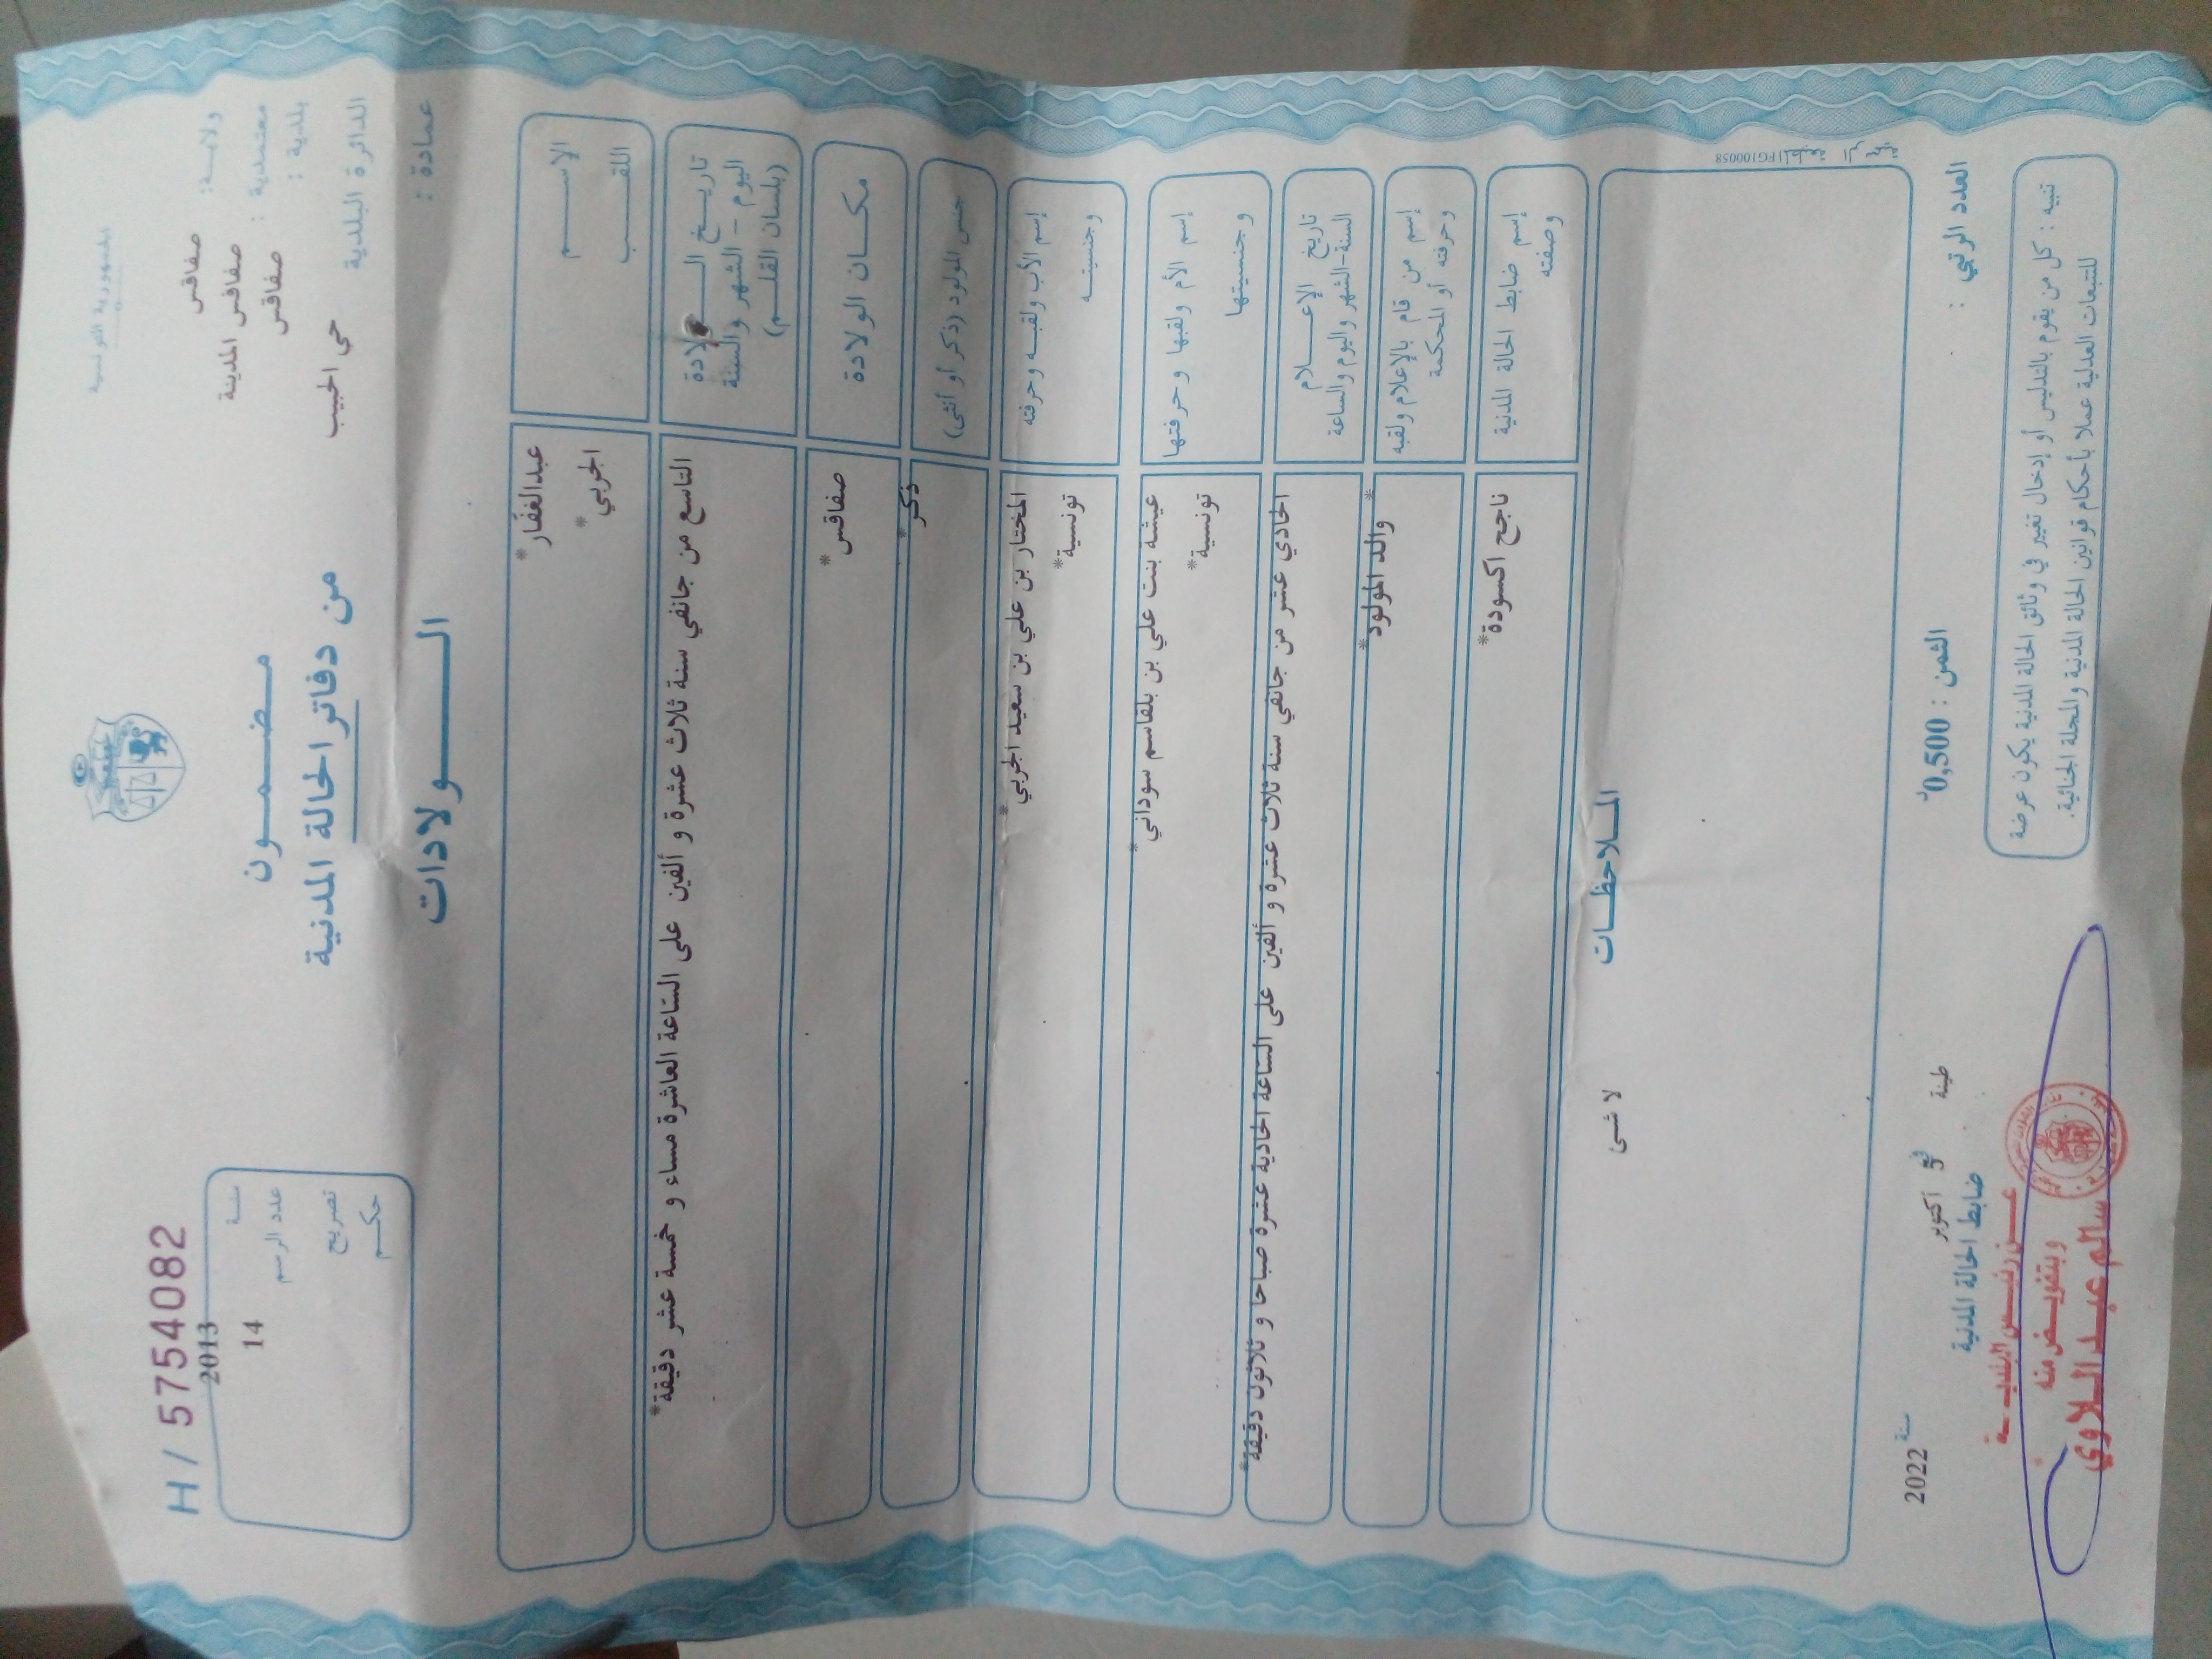 الجمهورية التونسية
ولايـــة: صفاقس
معتمدية : صفاقس المدينة
بلدية : صفاقس
الدائرة البلدية حي الحبيب
عمادة :
مـضـمــون
من دفاتر الحالة المدنية
الـــــولادات
H / 5754082
سنـة 2013
عدد الرسم 14
تصريح
حكـم
الإســـــم
اللقـــــب
عبدالغفّار*
الجربي*
تاريــخ الـــولادة
اليوم - الشهر والسنة
(بلسان القلـــم)
التاسع من جانفي سنة ثلاث عشرة و ألفين على السّاعة العاشرة مساء و خمسة عشر دقيقة*
مكــان الولادة
صفاقس*
جنس المولود (ذكر أو أنثى)
ذكر*
إسم الأب ولقبـه وحرفته
وجنسيتـــه
المختار بن علي بن سعيد الجربي*
تونسية*
إسم الأم ولقبها وحرفتها
وجنسيتها
عيشة بنت علي بن بلقاسم سوداني*
تونسية*
تاريخ الإعـــلام
السنة-الشهر واليوم والساعة
الحادي عشر من جانفي سنة ثلاث عشرة و ألفين على السّاعة الحادية عشرة صباحا و ثلاثون دقيقة*
إسم من قام بالإعلام ولقبه
وحرفته أو المحكمة
* والد المولود*
إسم ضابط الحالة المدنية
وصفته
ناجح اكسودة*
الملاحظـــات
لا شئ
FG100058
العدد الرتبي :
الثمن : 0,500د
طينة في أكتوبر سنة 2022
ضابط الحالة المدنية
تنبيه : كل من يقوم بالتدليس أو إدخال تغيير في وثائق الحالة المدنية يكون عرضة
للتتبعات العدلية عملا بأحكام قوانين الحالة المدنية والمجلة الجنائية.
عـــن رئيـــس البلديـــة
وبتفويـــض منه
سالم عبـد الـلاوي